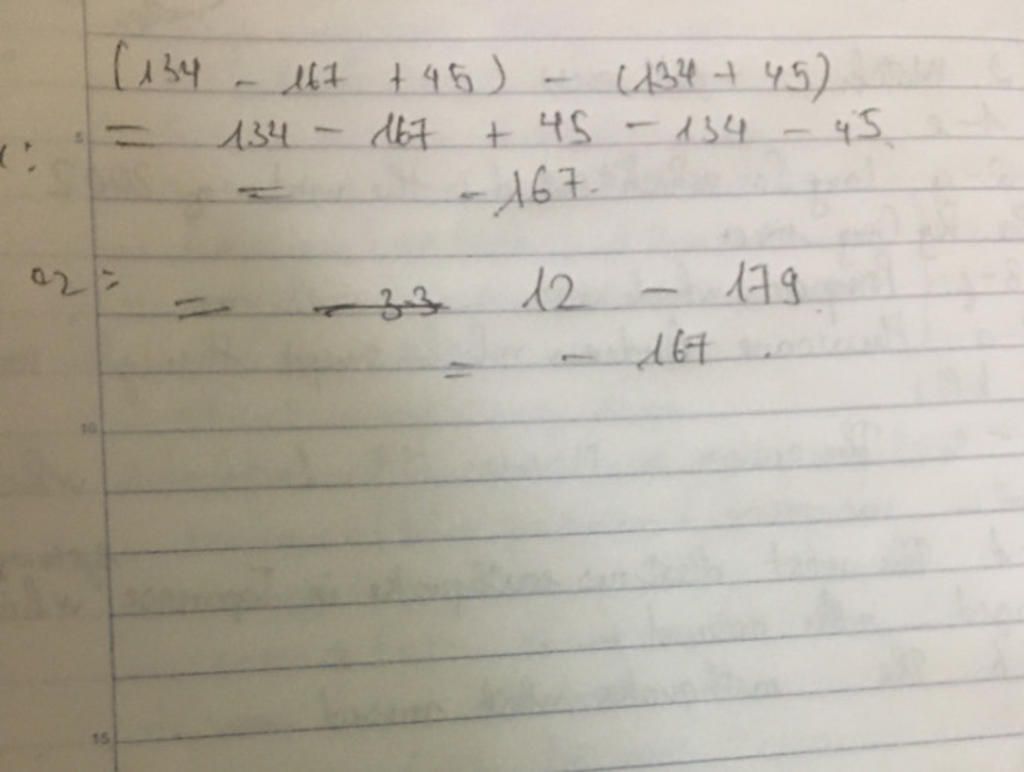 (134 - 167 + 45) - (134 + 45)
= 134 - 167 + 45 - 134 - 45
= -167.
= 12 - 179
= - 167.
5
10
15